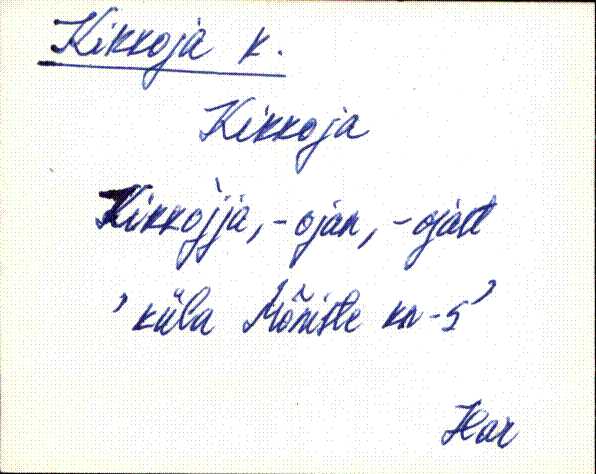 Kikkoja k.
Kikkoja
Kikkòjja, -ojan, -ojast
'küla Mõniste kn-s'
Har